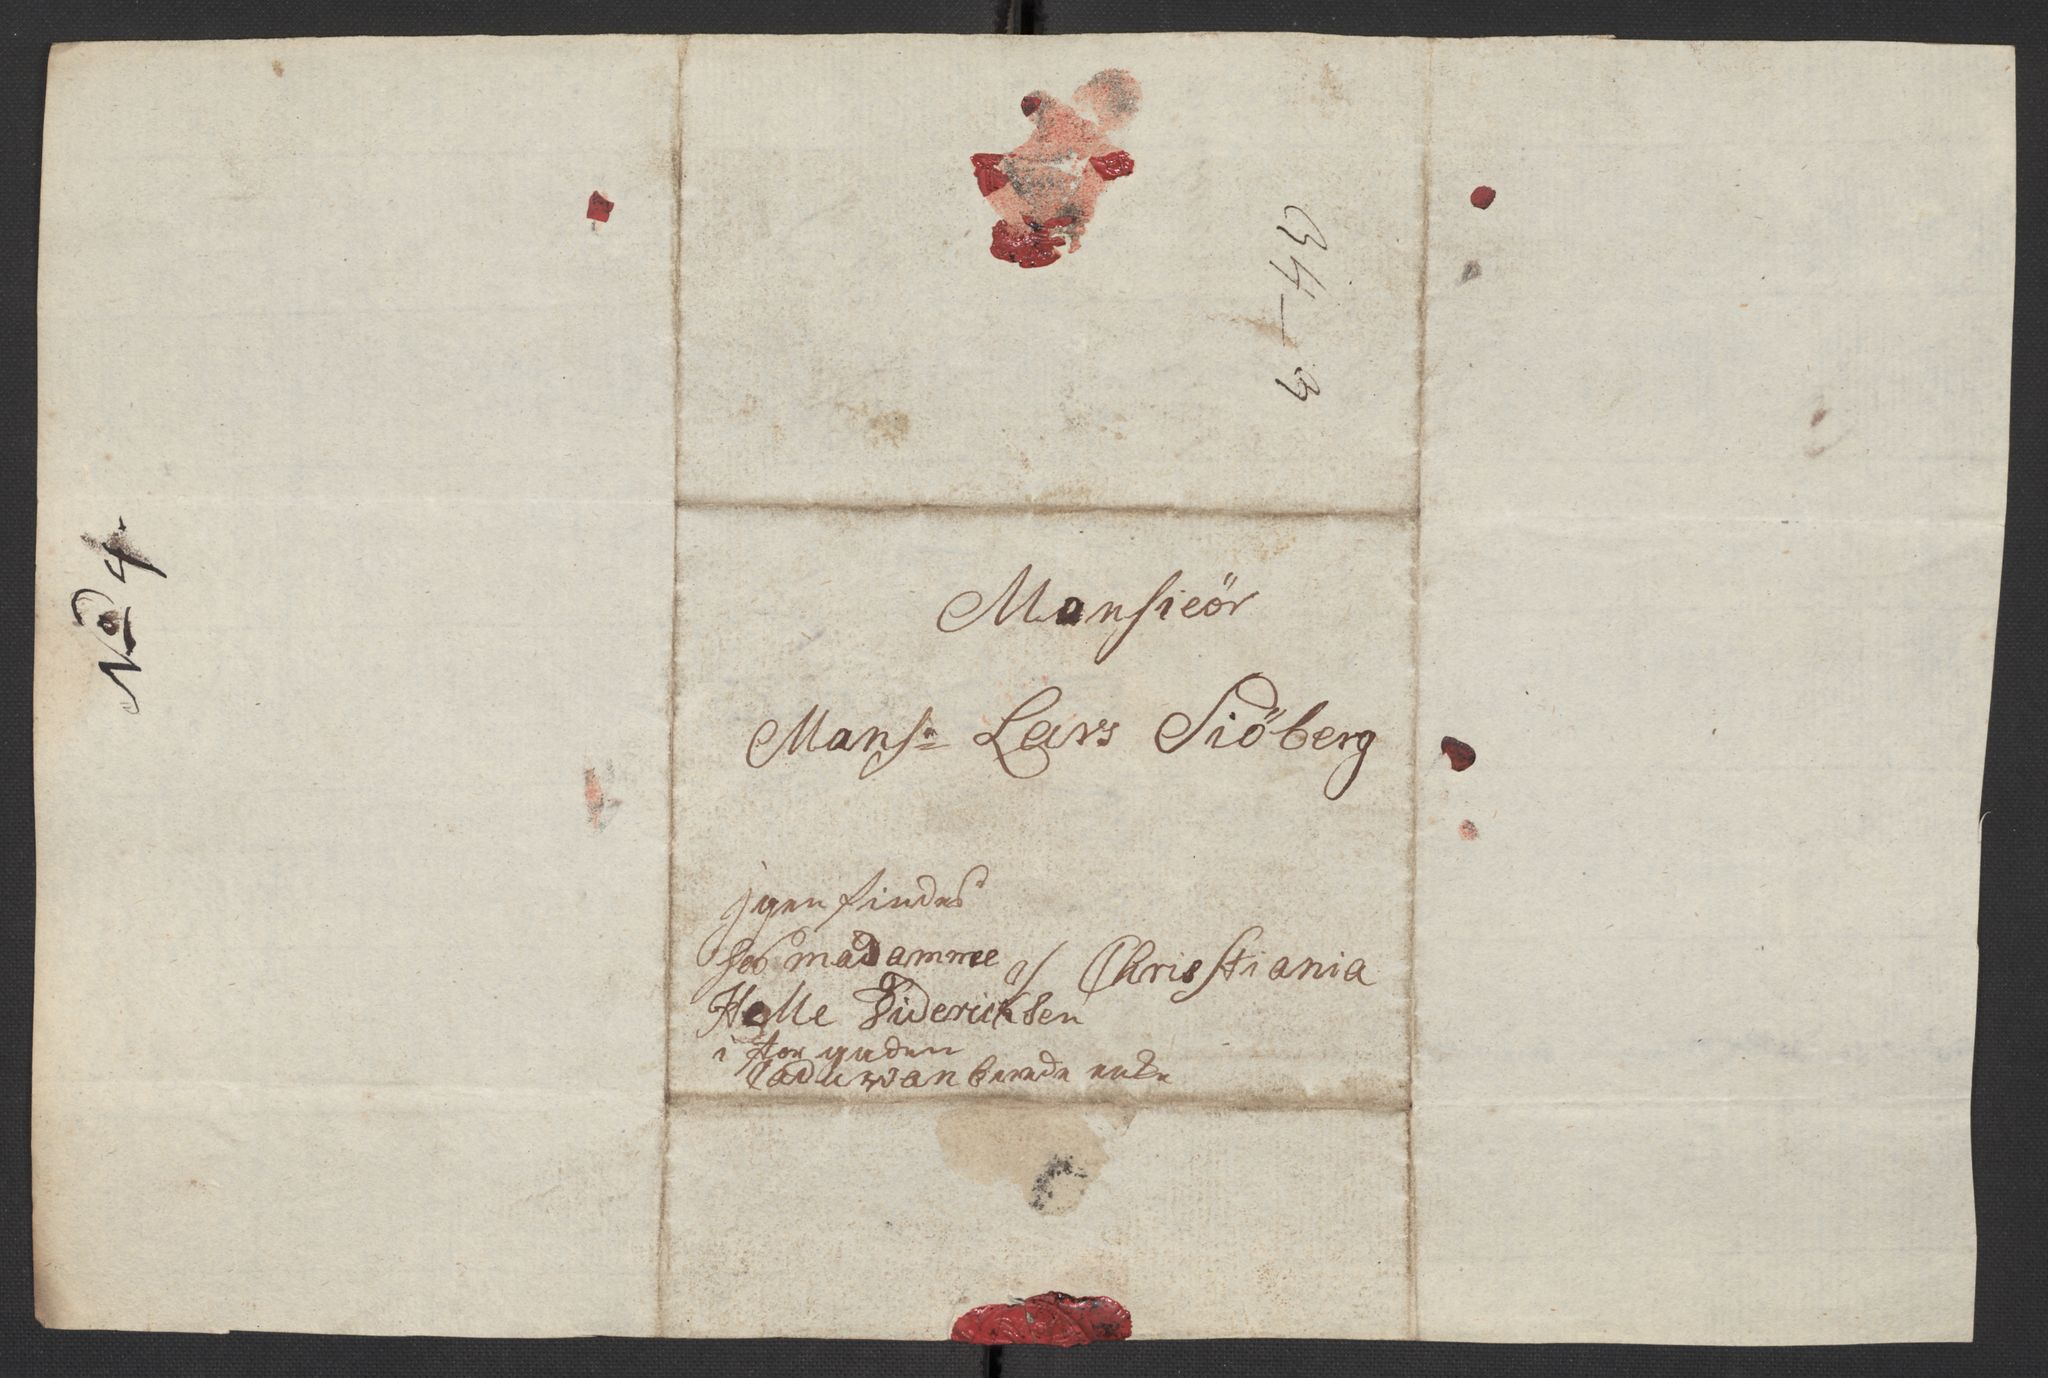 34 - 3
No 4
Monsieör
Mons: Lars Siöberg
jgen findes
hos madamme
Helle Diderichsen
i
Christiania